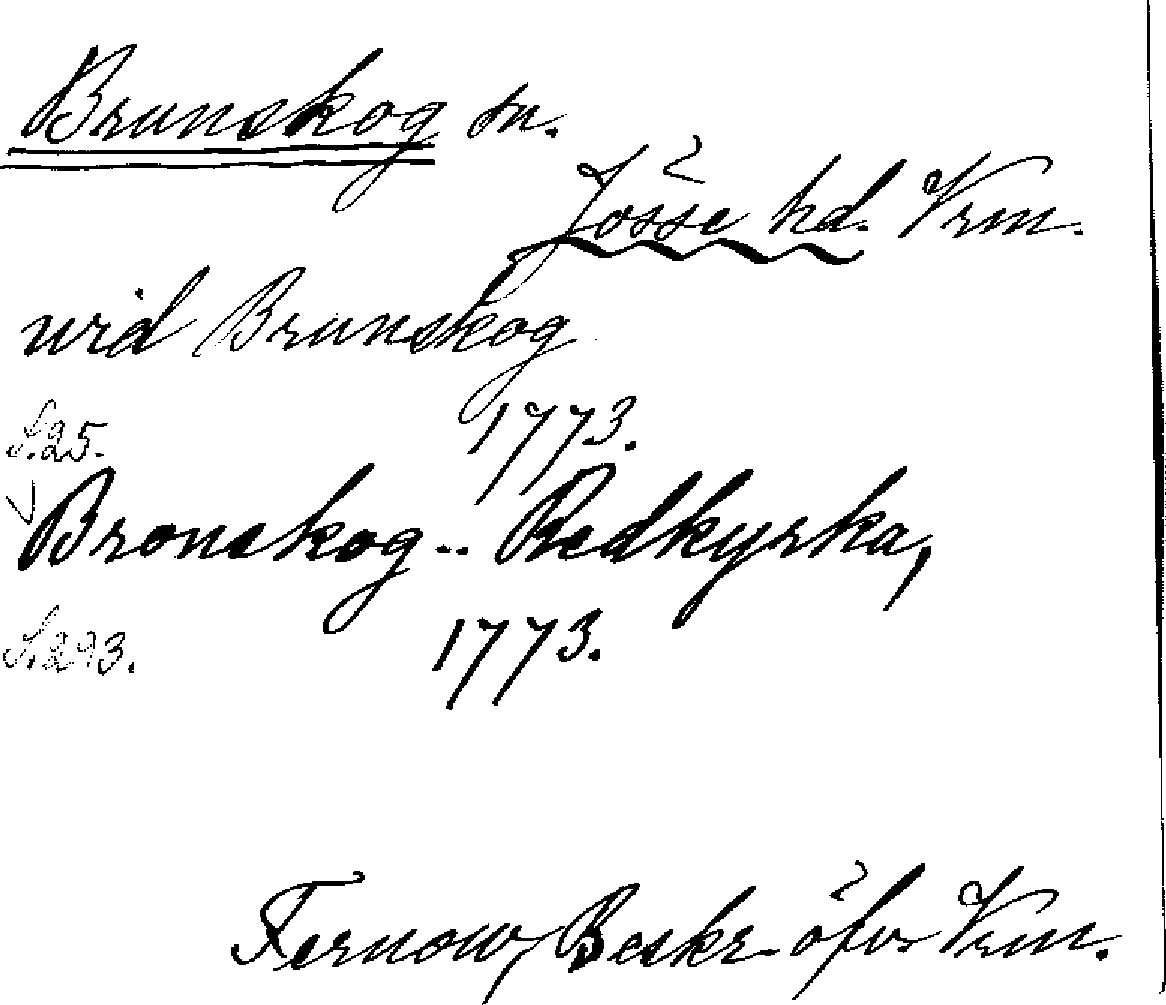 Brunskog sn.
Jösse hd. Vrm.
wid Brunskog
1773.
S. 25.
Bronskog.. Redkyrka,
1773.
S. 293.
Fernow, Beskr. öfv. Vrm.